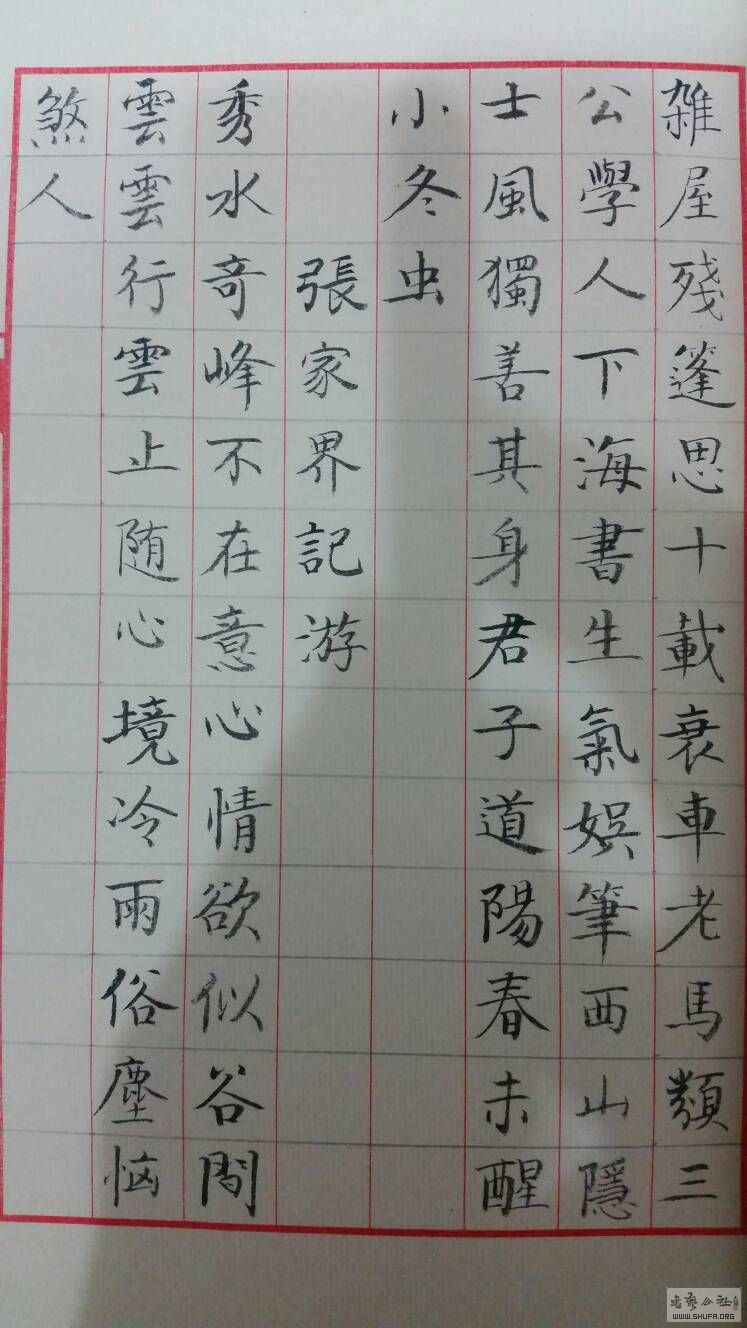 雑屋殘篷思十載衰車老馬類三
公學人下海書生氣娛筆西山隱
士風獨善其身君子道陽春未醒
小冬虫
張家界記游
秀水奇峰不在意心情欲似谷間
雲雲行雲止随心境冷雨俗塵恼
煞人
WWW.SHUFA.ORG